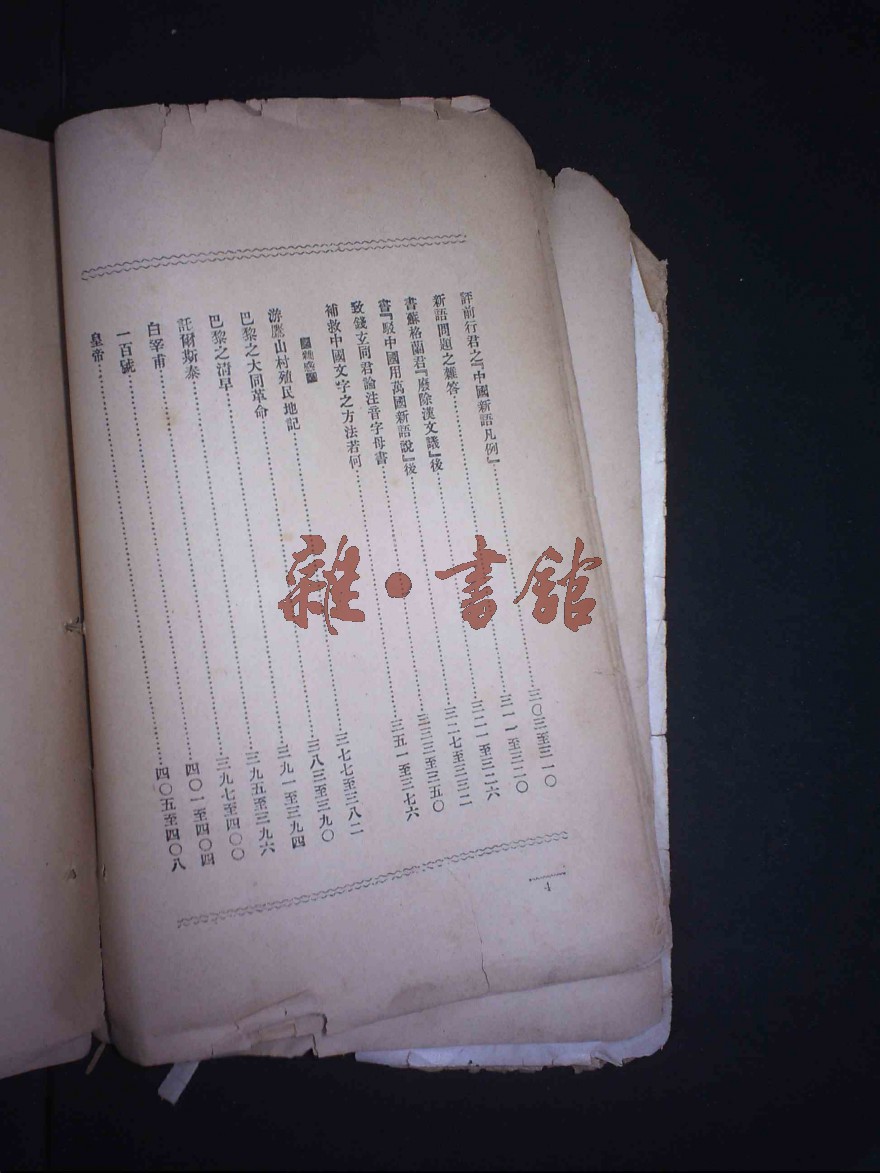 評前行君之『中國新語凡例』……三〇三至三一〇
新語問題之雜答……三一一至三二〇
書蘇格蘭君『廢除漢文議』後……三二一至三二六
書『駁中國用萬國新語說』後……三二七至三三二
致錢玄同君論注音字母書……三三三至三五〇
補救中國文字之方法若何……三五一至三七六
雜感
游鷹山村殖民地記……三七七至三八二
巴黎之大同革命……三八三至三九〇
巴黎之清早……三九一至三九四
託爾斯泰……三九五至三九六
白宰甫……三九七至四〇〇
一百號……四〇一至四〇四
皇帝……四〇五至四〇八
4
雜·書館